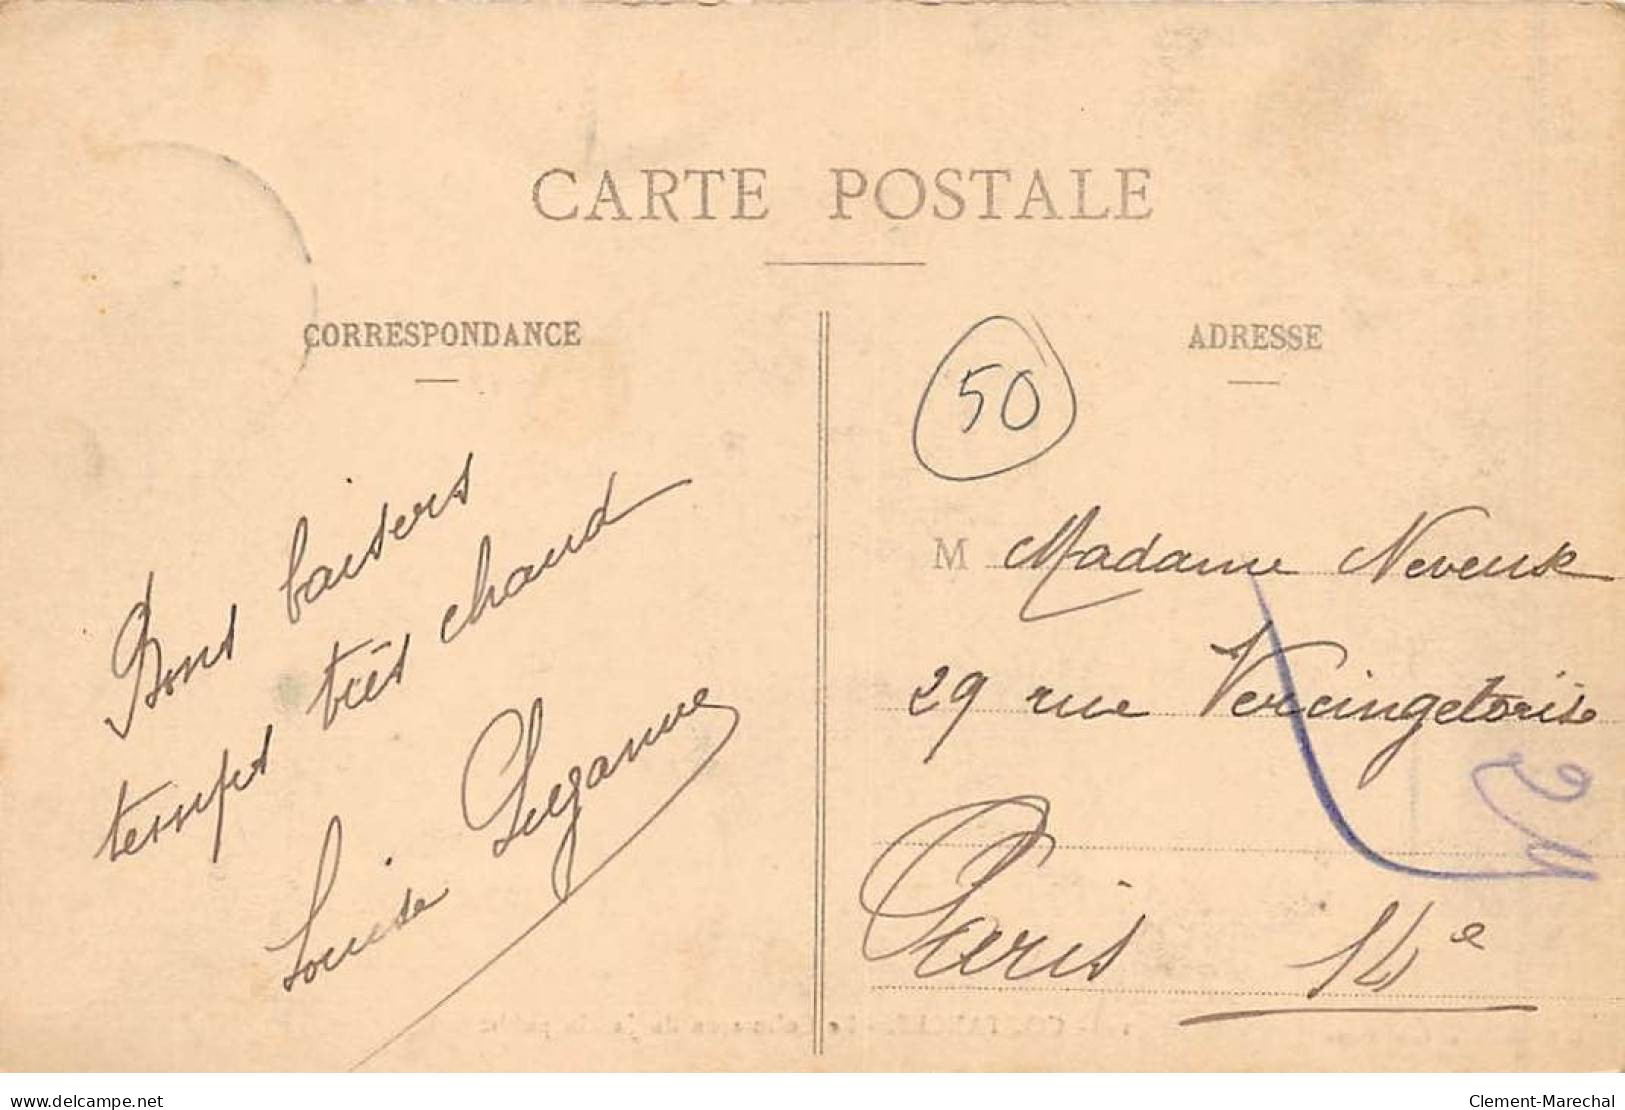 CARTE POSTALE
CORRESPONDANCE
Bons baisers
temps très chaud
Louise
ADRESSE
50
M Madame Neveux
29 rue Vercingetorix
Paris 14e
www.delcampe.net
Clement-Marechal